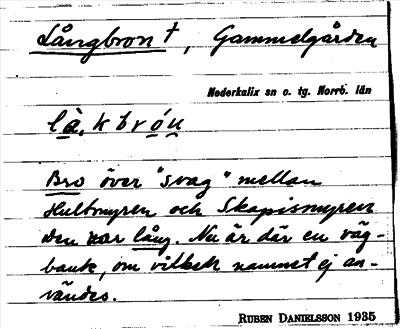 Långbron †, Gammelgården
Nederkalix sn o. tg. Norrb. län
là, k b r ó u
Bro över "svag" mellan
Hultmyren och Skapismyren
Den var lång. Nu är där en väg-
bank, om vilken namnet ej an-
vändes.
RUBEN DANIELSSON 1935